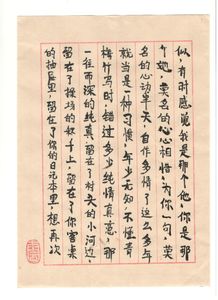 似，有时感觉我是那个他，你是那
个她，莫名的心心相惜，为你一句，莫
名的心动半天，自作多情了这么多年
就当是一种习惯，年少无知，不懂青
梅竹马时，错过多少纯情真意，那
一往而深的纯真，留在了村头的小河边，
留在了操场的秋千上，留在了你窗台
的抽屉里，留在了你的日记本里，想再次